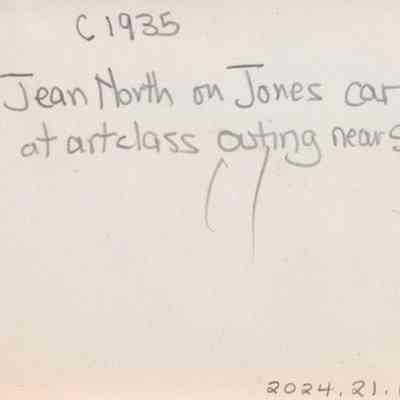 C 1935
Jean North on Jones car
at artclass outing near
2024.21.